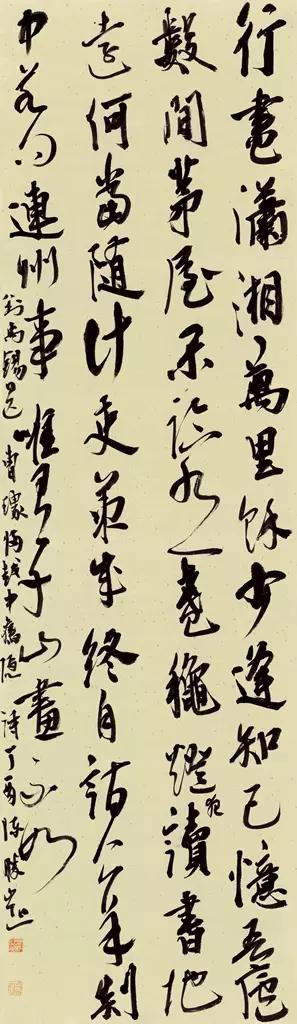 行盡瀟湘萬里餘少逢知己憶吾廬
數間茅屋閒臨水一盞龝燈夜讀書地
遠何當隨計吏策成終自詣公車剡
中若問連州事唯有千山畫不如
劉禹錫送曹璩歸越中舊隱詩丁酉陳勝